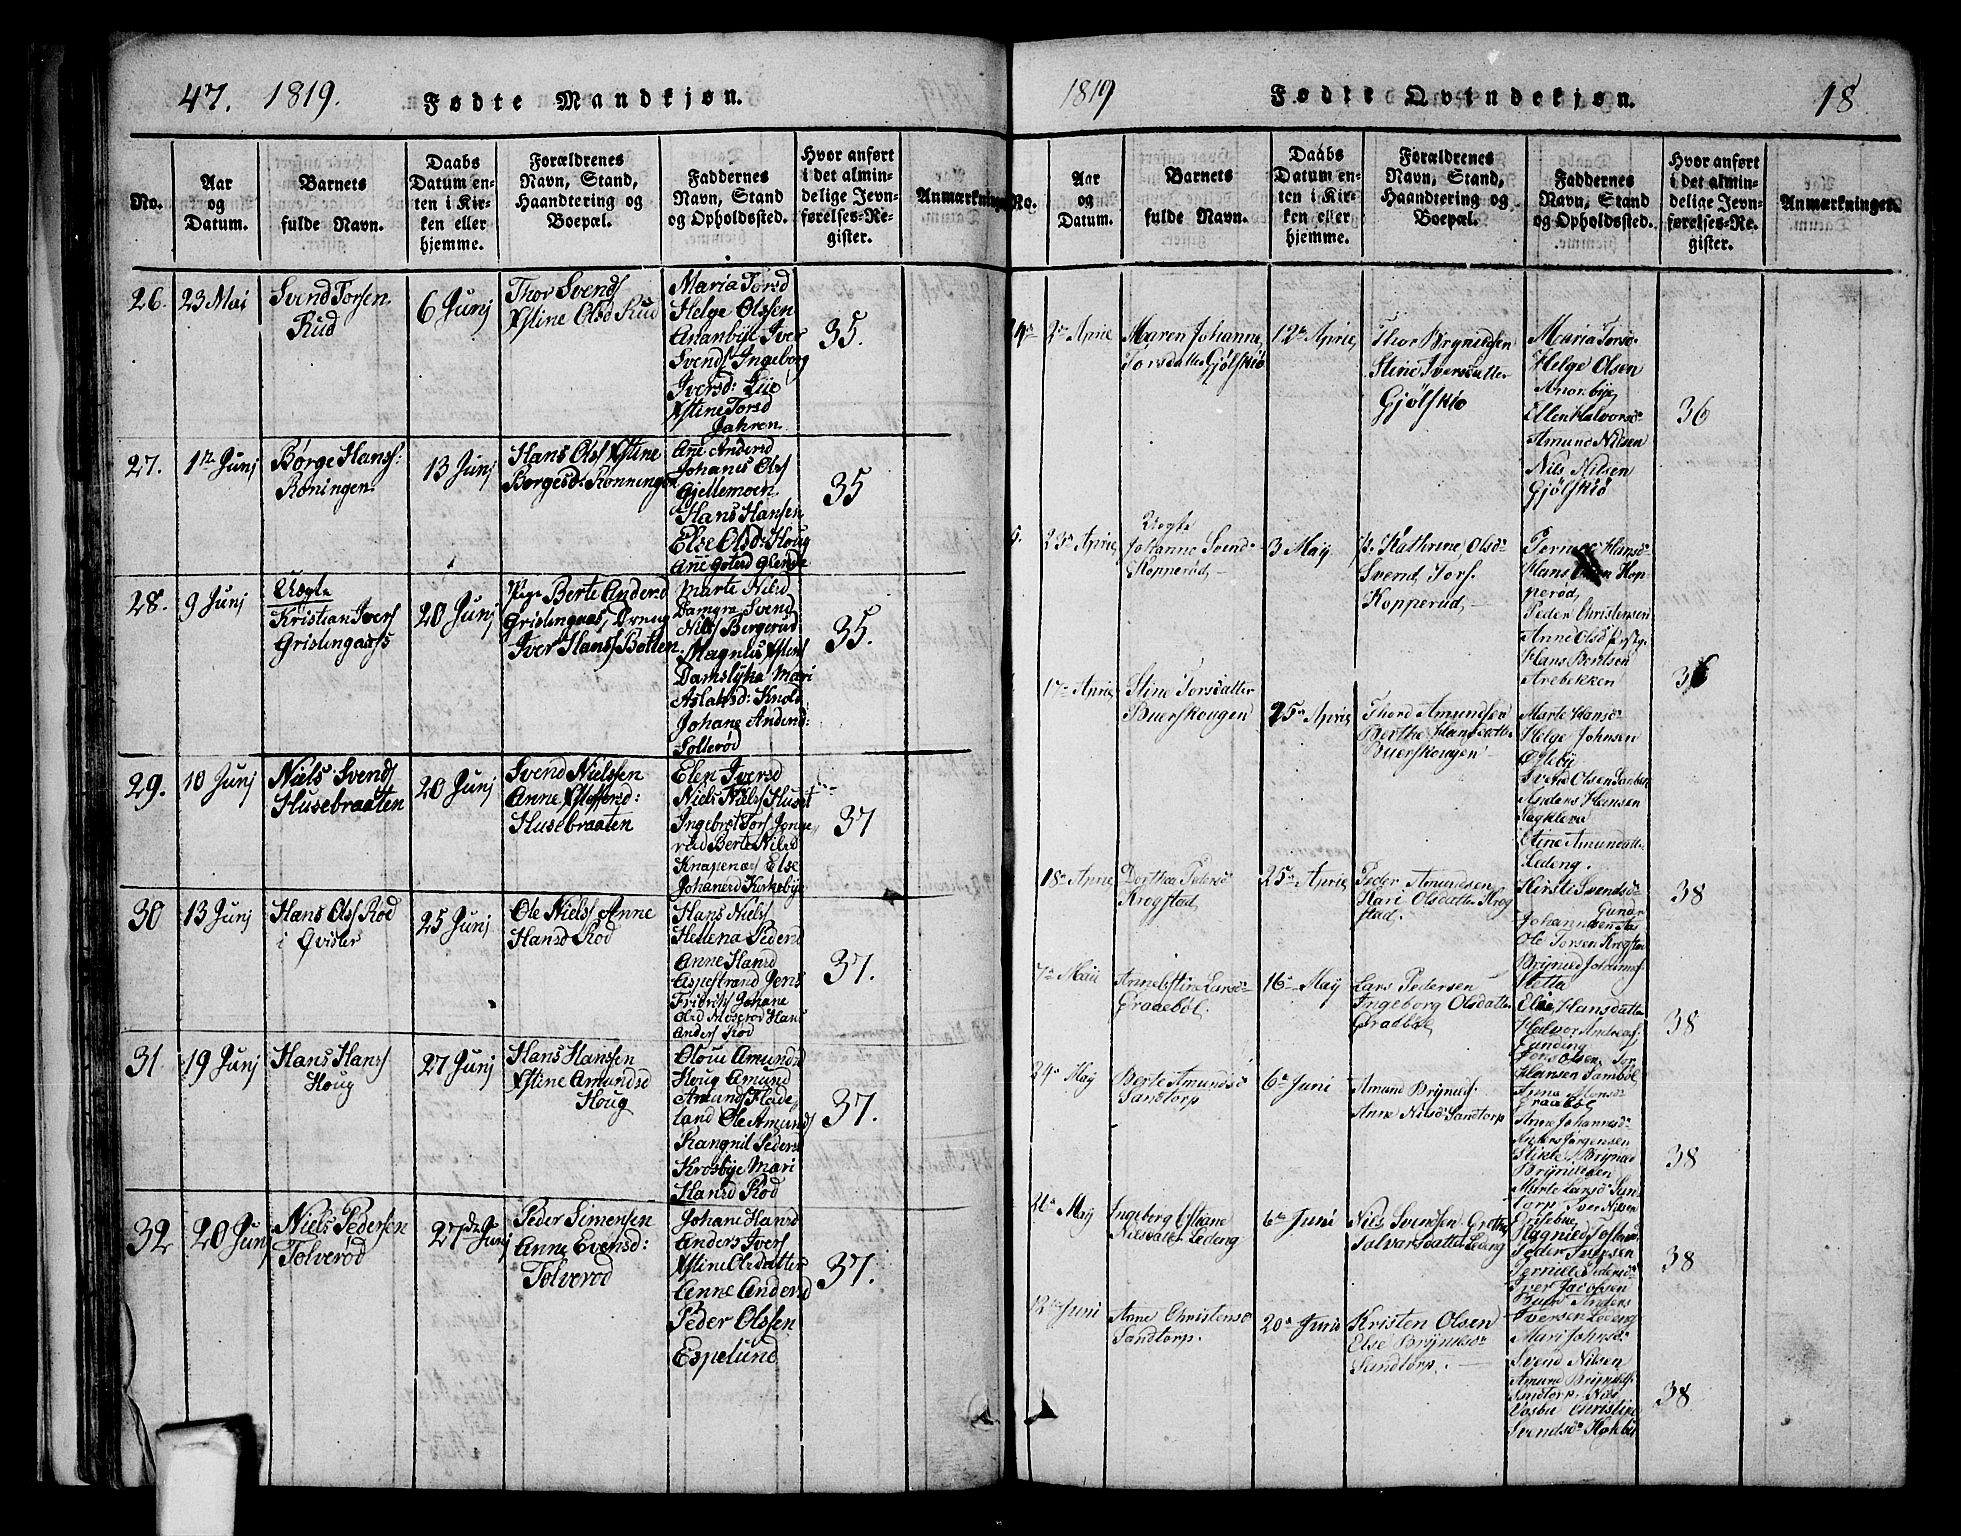 47. 1819. Fødte Mandkjøn.
No.
Aar
og
Datum.
Barnets
fulde Navn.
Daabs
Datum en-
ten i Kir-
ken eller
hjemme.
Forældrenes
Navn, Stand,
Haandtering og
Boepæl.
Faddernes
Navn, Stand
og Opholdssted.
Hvor anført
i det almin-
delige Jevn-
førelses-Re-
gister.
Anmærkninger
26.
23 Mai
Svend Torsen
Rud
6 Junj
Thor Svends
Xstine Olsd Rud
Maria Torsd
Helge Olssen
Ananbye Iver
Svends Ingeborg
Iversd: Lie
Xstine Torsd
Jahren
35.
27.
1te Junj
Børge Hans:
Roningen
13 Junj
Hans Ols Xstine
Borgesd: Rønningen
Ane Andersd
Johanis Ols
Gjellemoen
Hans Hansen
Else Olsd: Houg
Ane
35
28.
9 Junj
Uægte
Kristian Ivers
Gristingaass
20 Junj
Pige Berte Andersd
Gristingaas, Dreng
Iver Hans Botten
Marte Nilsd
Damgra Svend
Nils Bergerud
Magnus Xstens
Damslyka Mari
Aslaksd: Knold
Johane Andersd:
Solterød
35.
29.
10 Junj
Niels Svends
Husebraaten
20 Junj
Svend Nielssen
Anne Xstoffersd:
Husebraaten
Elen Iversd
Niels Niels Huset
Ingebret Tors Jonge
rud Berte Nilsd
Knapenæs Else
Johanersd Kirkebye
37
30
13 Junj
Hans Ols Rød
i Qvisler
25 Junj
Ole Niels Anne
Hansd Rød
Hans Niels
Hellena Pedersd
Anne Hansd
Aspestrand Jens
Fridrichs Johane
Olsd Moserød Hans
Anders Rød
37.
31
19 Junj
Hans Hans
Houg
27 Junj
Hans Hanssen
Xstine Amundsd
Houg
Oloue Amundsd
Houg Amund
Amunds Flade
land Ole Amunds
Rangnil Peders
Krosbye Mari
Hansd Rød
37.
32
20 Junj
Niels Pedersen
Tolverød
27de Junj
Peder Simensen
Anne Evensd:
Tolverod
Johane Hansd
Anders Ivers
Xstine Olsdatter
Anne Andersd
Peder Olssen
Espelund
37.
1819 Fødte Qvindekjøn. 18
No.
Aar
og
Datum.
Barnets
fulde Navn.
Daabs
Datum en-
ten i Kir-
ken eller
hjemme.
Forældrenes
Navn, Stand,
Haandtering og
Boepæl.
Faddernes
Navn, Stand
og Opholdssted.
Hvor anført
i det almin-
delige Jevn-
førelses-Re-
gister.
Anmærkninger.
Maren Johanne
Torsdatter Gjølskiø
Thor Brynildsen
Stine Iversdatter
Gjølskiø
Maria Torsd:
Helge Olsen
Anonbye
Ellen Halvorsd:
Amund Nilsen
Nils Nilsen
Gjølskiø
36
Uægte
Johanne Svends
Kopperød
3 May
P. Kathrine Olsd:
Svend Tors.
Kopperud
Pernille Hansd:
Hans Kop
perød,
Peder Christensen
Anne Olsd
Hans Berntsen
Arebekken
36
Stine Torsdatter
Buerskougen
25 April
Thord Amundsen
Berthe Hansdatter
Buerskougen
Marte Hansd:
Helge Johnsen
Østebye
Svend Olsen
Anders Hansen
Stine Amundsdatter
Ledeng.
38
Dorthea Pedersd:
Krogstad
25 April
Peder Amundsen
Kari Olsdatter Krog
stad
Kirste Svendsd:
Gunder
Johannesen
Ole Torsen Krogstad
Brynild Johannes
Stetta
38
7 Maii
Anne Xstine Larsd:
Graaebøl
16 May
Lars Pedersen
Ingeborg Olsdatter
Graabøl
Elie Hansdatter
Halvor Andreas
Jens Olsen Tor
Hansen Sambøl
Anne Hansd:
Graabøl
38
24 May
Berte Amundsd:
Sandtorp
6 Juni
Amund Brynilds:
Anne Nilsd: Sandtorp
Anne Johannesd:
Anders Jørgensen
Brynildsen
Marte Larsd:
torp Iver Nilsen
38
May
Ingeborg Xstiane
Nilsdatter Ledeng
6 Juni
Nils Svendsen Grethe
Halvorsdatter Ledeng
Peder Iversen
Pernille Pedersd:
Iver Jacobsen
Anders
Iversen Ledeng
38
12 Juni
Anne Christensd:
Sandtorp.
20 Junii
Kristen Olsen
Else Brynilds
Sandtorp.
Mari Johnsd:
Svend Nilsen
Amund Brynilds
Sandtorp. Nils
Vosbye Christine
Svendsd:
38